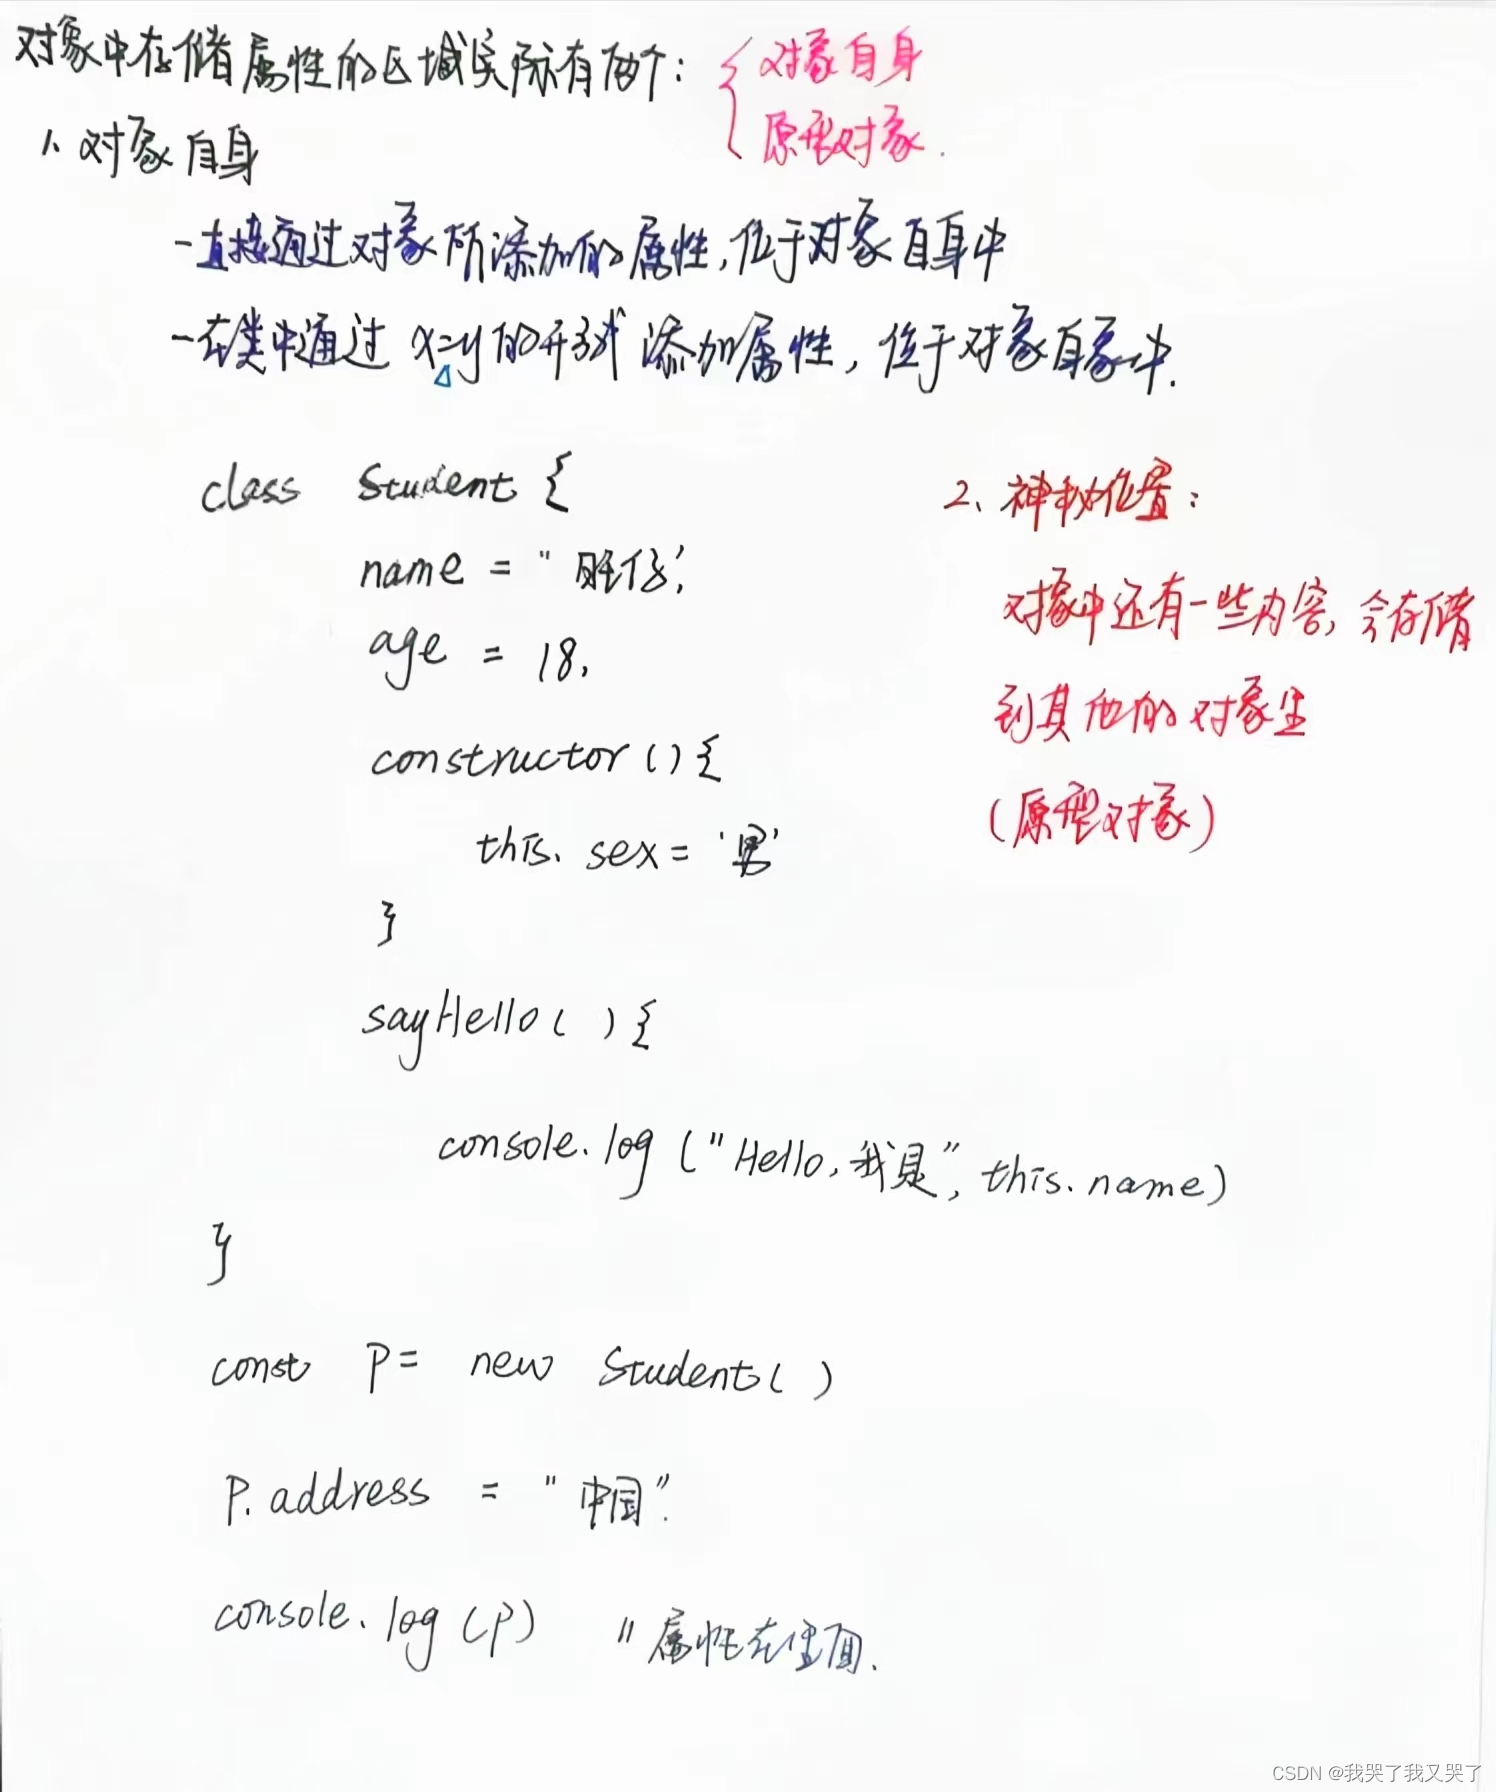 对象中存储属性的区域实际有两个：
对象自身
原型对象.
1、对象自身
-直接通过对象所添加的属性,位于对象自身中
-在类中通过 x=y 的形式 添加属性, 位于对象自象中.
class Student {
name = "
age = 18,
constructor(){
this. sex = '男'
}
sayHello( ){
console. log ("Hello,我是", this. name)
}
const P= new Student( )
P. address = "中国".
console. log (P) "属性在里面.
2、神秘位置：
对象中还有一些内容, 会存储
到其他的对象里
(原型对象)
CSDN @我哭了我又哭了